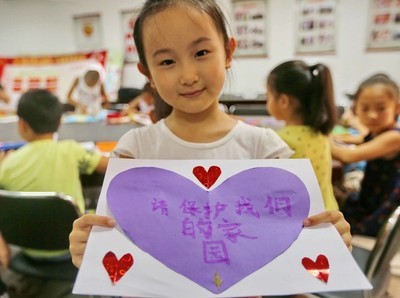 请保护我们
的家
园